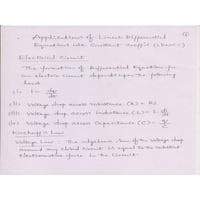 Applications of Linear Differential
Equations with Constant Coeffts (LDEWCC)
Electrical Circuit
The formation of Differential Equation for
an electric circuit depends upon the following
laws
(i) i = dq/dt
(ii) Voltage drop across resistance (R) = Ri
(iii) Voltage drop across Inductance (L) = L di/dt
(iv) Voltage drop across Capacitance (C) = q/C
Kirchhoff's Law
Voltage Law - The algebraic sum of the voltage drop
around any closed circuit is equal to the resultant
electromotive force in the circuit